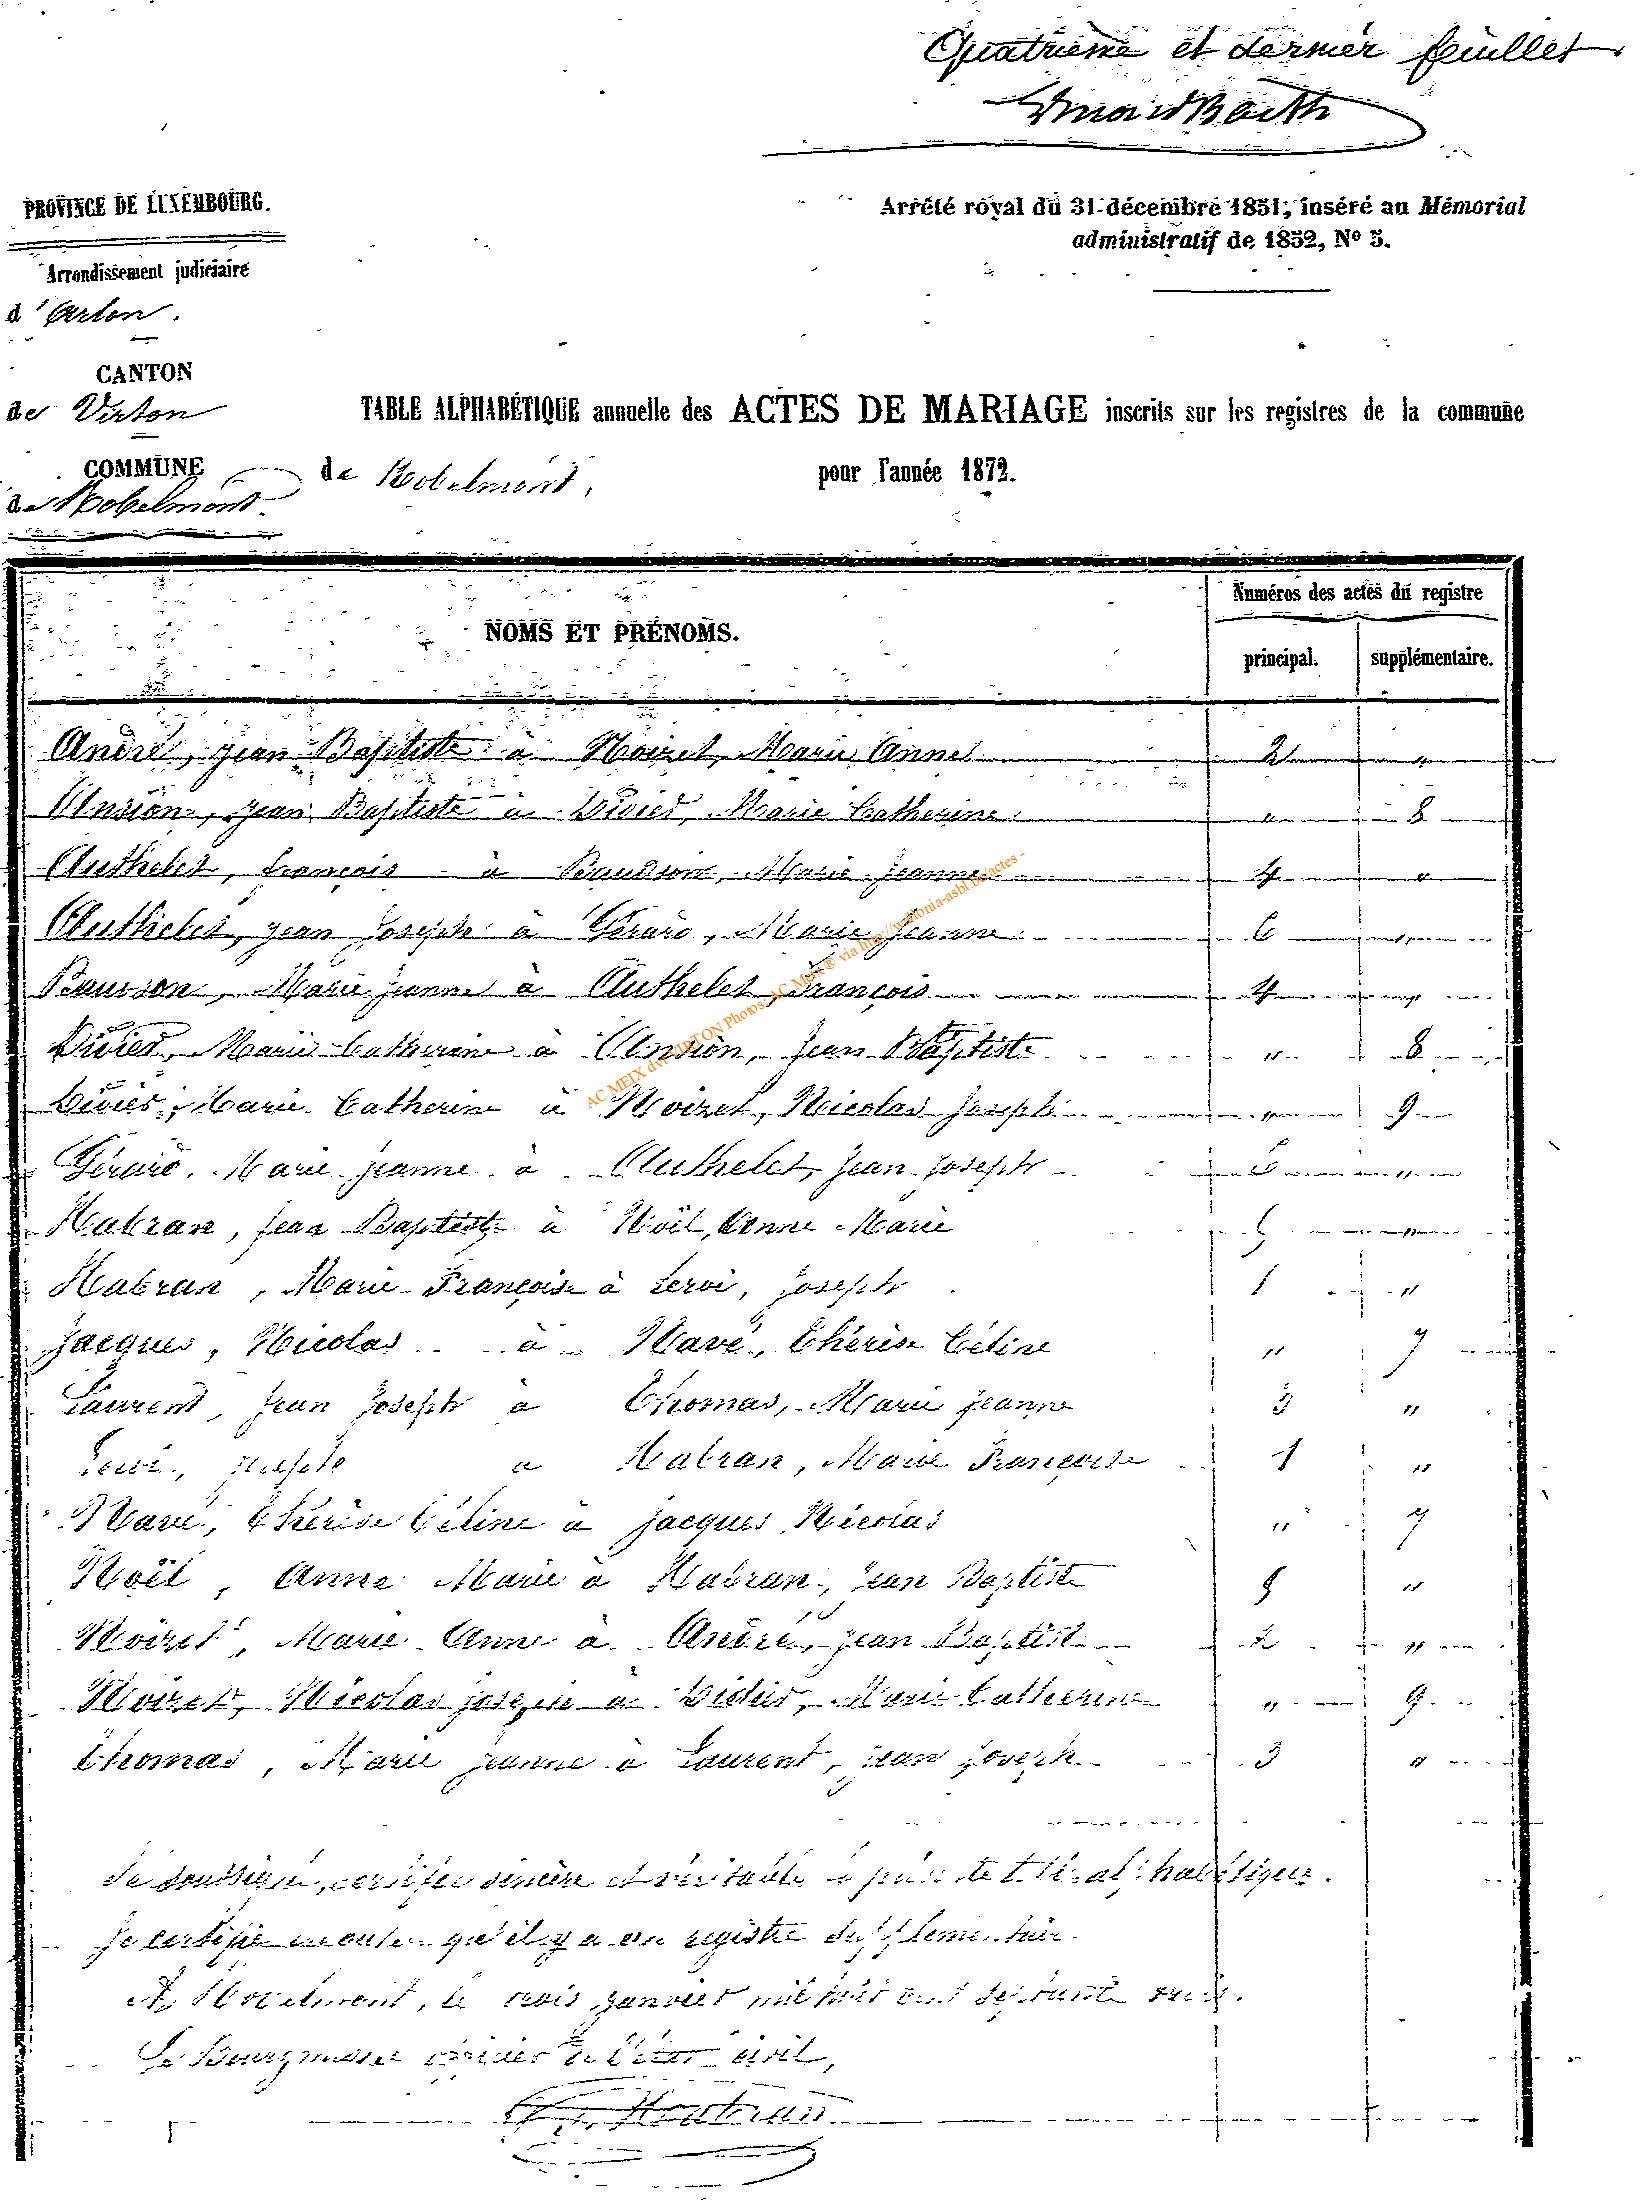 Quatrième et dernier feuillet
PROVINCE DE LUXEMBOURG.
Arrêté royal du 31 décembre 1851, inséré au Mémorial
administratif de 1852, No 5.
Arrondissement judiciaire
d'Arlon.
CANTON
de Virton
TABLE ALPHABÉTIQUE annuelle des ACTES DE MARIAGE inscrits sur les registres de la commune
COMMUNE
de Robelmont, pour l'année 1872.
de Robelmont
Numéros des actes du registre
NOMS ET PRÉNOMS.
principal. supplémentaire.
André, Jean Baptiste à Noizet, Marie Anne 2 "
Ansion, Jean Baptiste à Didier, Marie Catherine. " 8
Authelet, François à Baudson, Marie Jeanne 4 "
Authelet, Jean Joseph à Gérard, Marie Jeanne 6 "
Baudson, Marie Jeanne à Authelet François 4 "
Didier, Marie Catherine à Ansion, Jean Baptiste " 8
Didier, Marie Catherine à Noizet, Nicolas Joseph " 9
Gérard, Marie Jeanne à Authelet, Jean Joseph 6 "
Habran, Jean Baptiste à Noël, Anne Marie 5 "
Habran, Marie Françoise à Servi, Joseph 1 "
Jacques, Nicolas à Navé, Thérèse Céline " 7
Laurent, Jean Joseph à Thomas, Marie Jeanne 3 "
Joseph à Habran, Marie Françoise 1 "
Navé, Thérèse Céline à Jacques Nicolas " 7
Noël, Anne Marie à Habran, Jean Baptiste 5 "
Noizet, Marie Anne à André, Jean Baptiste 2 "
Noizet, Nicolas Joseph à Didier, Marie Catherine " 9
Thomas, Marie Jeanne à Laurent, Jean Joseph 3 "
Le soussigné, certifie sincère et véritable la présente table alphabétique.
Je certifie en outre qu'il y a un registre supplémentaire.
A Robelmont, le trois janvier mil huit cent septante trois.
Le Bourgmestre officier de l'état civil,
AC MEIX dvt VIRTON Photos AC Meix® via http://gaftonia-asbl.be/actes -